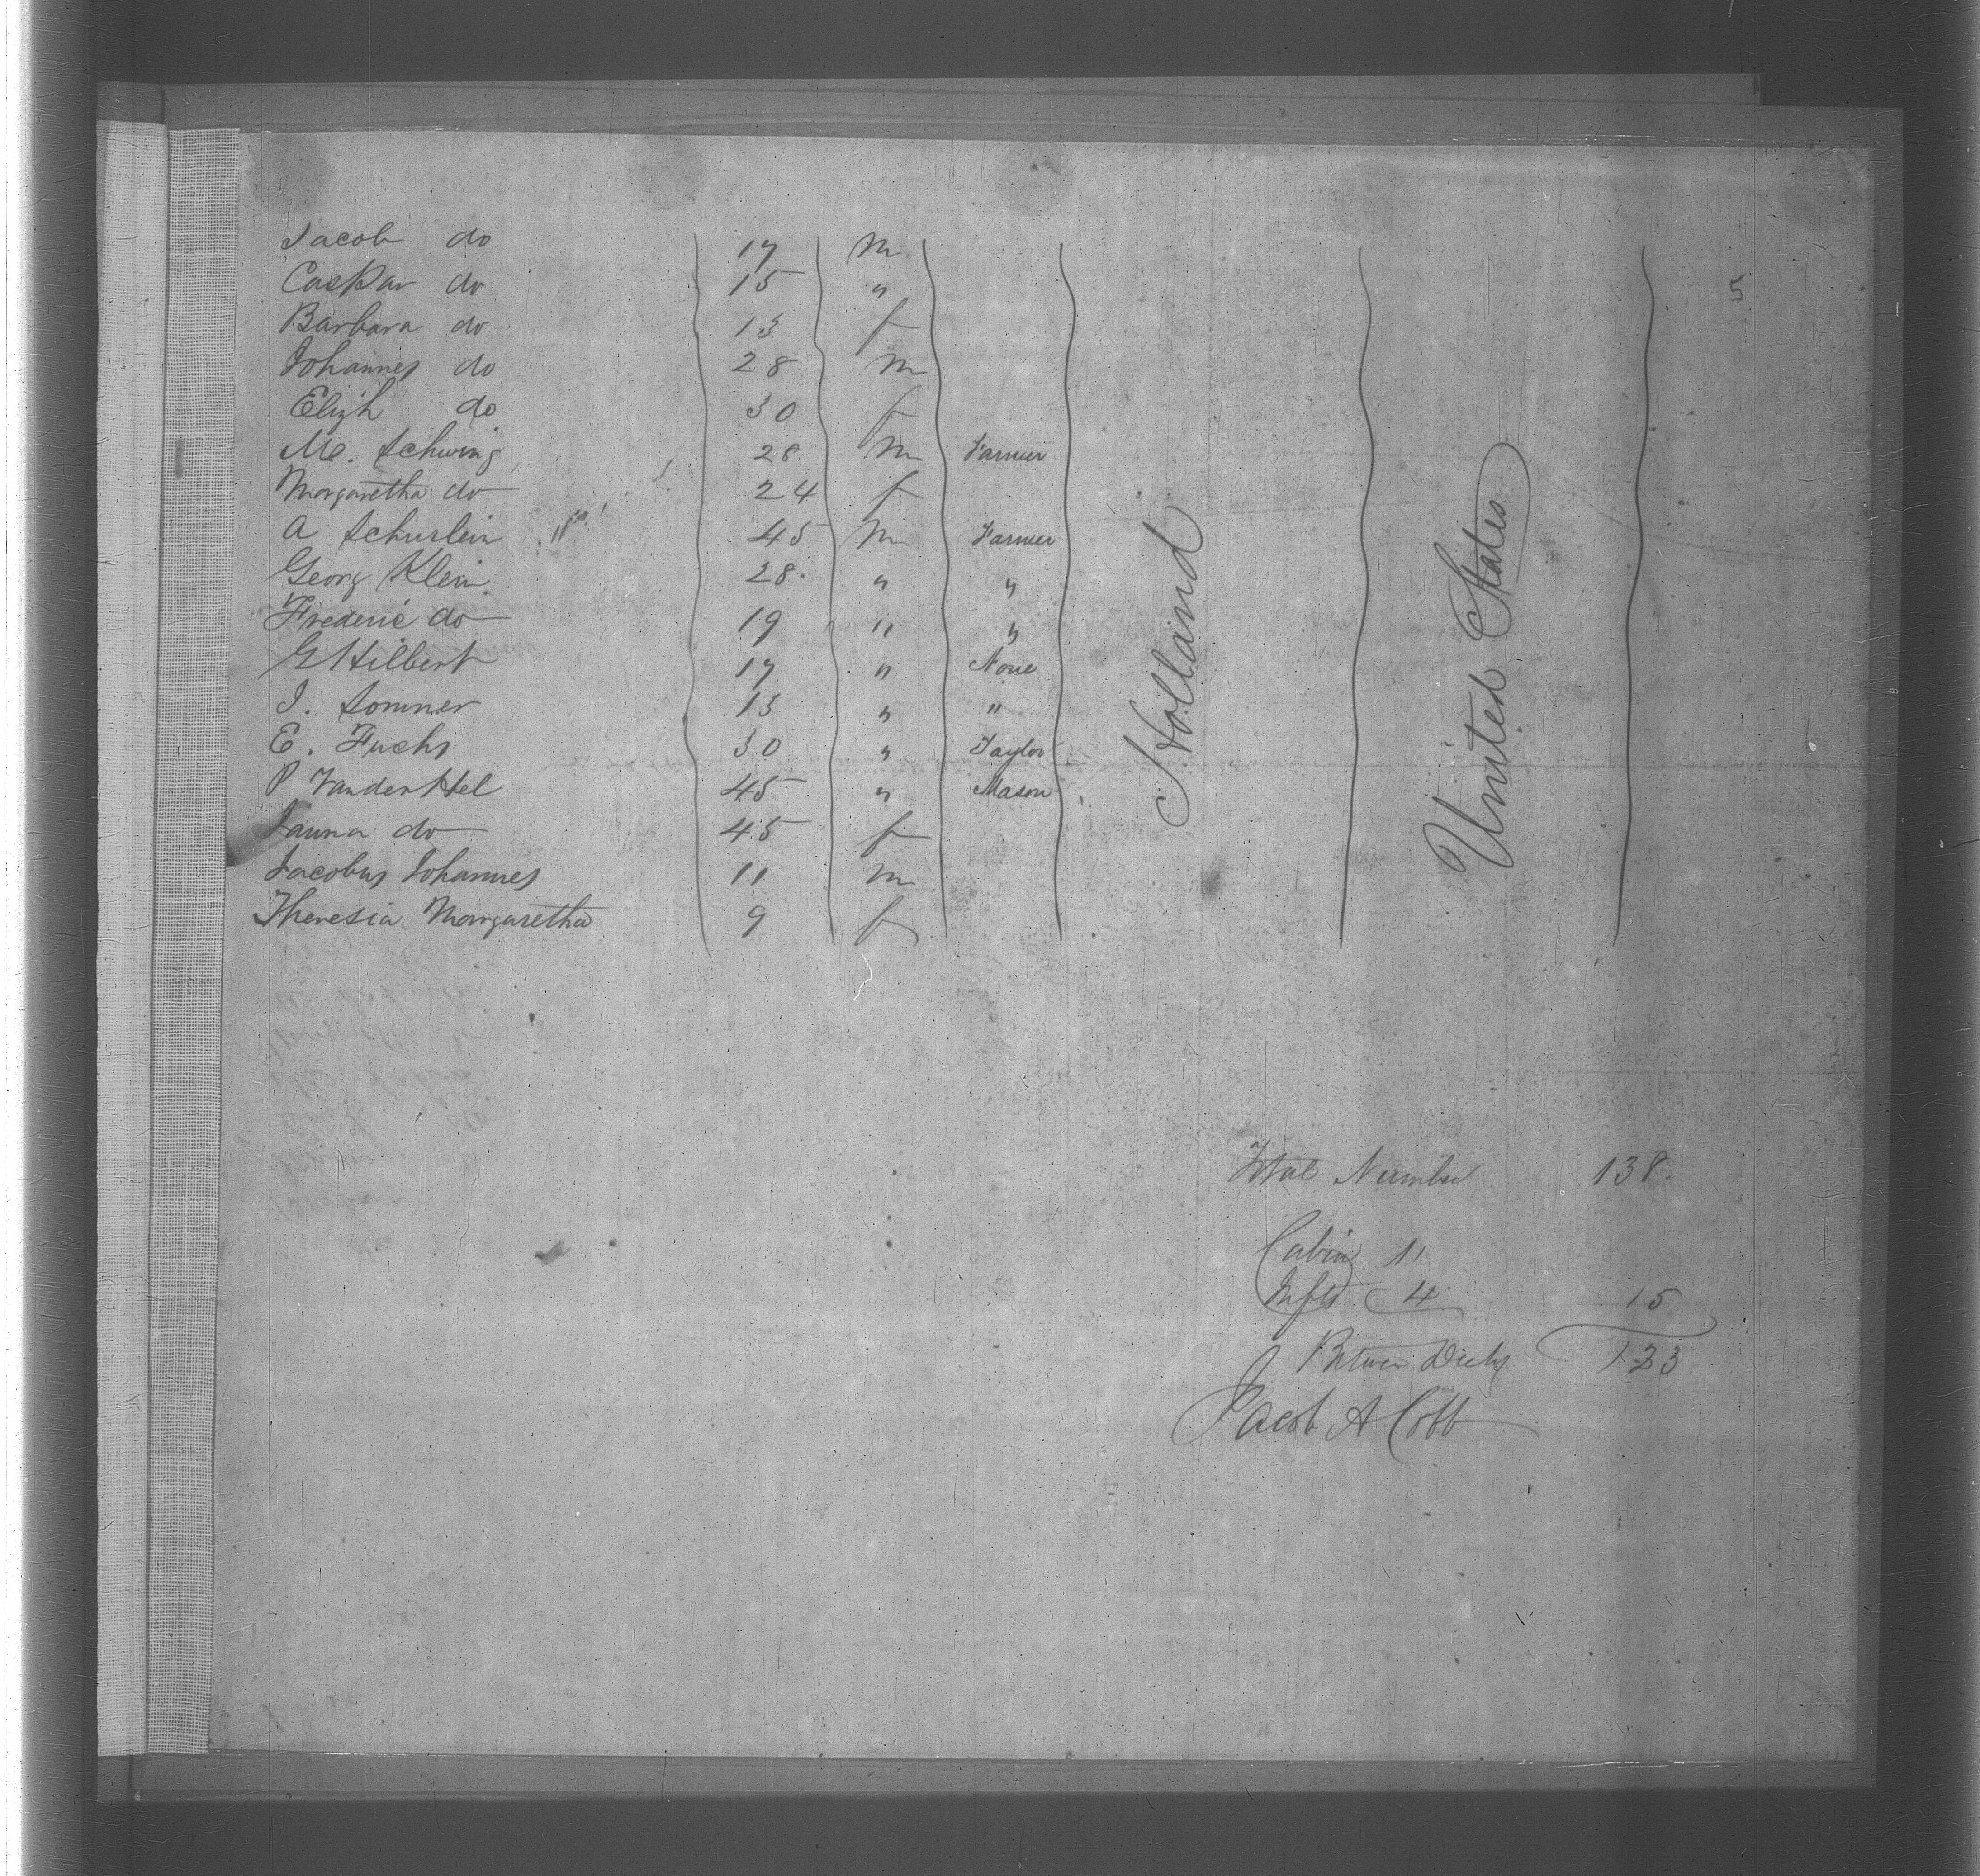 Jacob do 17 m
Caspar do 15 "
Barbara do 13 f
Johannes do 28 m
Elizh do 30 f
M. Schwing 28 m Farmer
Margaretha do 24 f
A Schurlein 45 m Farmer
Georg Klein 28 " "
Frederic do 19 " "
G Hilbert 17 " None
J. Sommer 13 " "
E. Fuchs 30 " Taylor
P VanderHel 45 " Mason
Janna do 45 f
Jacobus Johannes 11 m
Theresia Margaretha 9 f
Holland
United States
5
Total Number 138.
Cabin 11
Infts 4 15
Between Decks 123
Jacob A Cobb